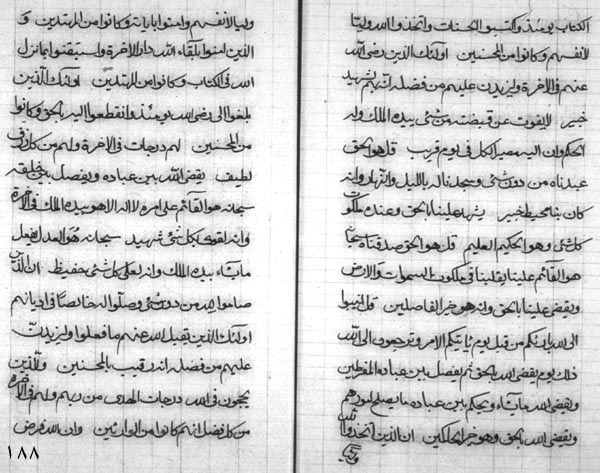 الكتاب يومئذ واكتسبوا الحسنات واتخذوا الله وليا
لانفسهم وكانوا من المحسنين اولئك الذين رضى الله
عنهم فى الاخرة وليزيدن عليهم من فضله انه بهم شهيد
خبير لايفوت عن قبضته من شئ بيده الملك وله
الحكم وان اليه مصير الكل فى يوم قريب قل هو الحق
عبدناه من دون شئ وسجدنا له بالليل والنهار وانه
كان بنا محيط خبير يشهد علينا بالحق وعنده ملكوت
كل شئ وهو الحكيم العليم قل هو الحق صدقناه سبحانه
هو القائم علينا يقلبنا فى ملكوت السموات والارض
ويقضى علينا بالحق وانه هو خير الفاصلين قل انيبوا
الى الله بارئكم من قبل يوم ياتيكم الامر وترجعون الى الله
ذلك يوم يقضى الله بالحق ثم يفصل بين عباده المفرطين
ويقضى الله ما يشاء ويحكم بين عباده ما يصلح امورهم
ويقضى الله بالحق وهو خير الحاكمين ان الذين اتخذوا الله
وليا لانفسهم وامنوا باياته وكانوا من المهتدين و
الذين امنوا بلقاء الله دار الاخرة واستيقنوا بما نزل
الله فى الكتاب وكانوا من المهتدين اولئك الذين
بلغوا الى رضى الله يومئذ وانقطعوا اليه بالحق وكانوا
من المحسنين لهم درجات فى الاخرة ولهم من كل رفرف
لطيف يقضى الله بين عباده ويفصل بين خلقه
سبحانه هو القائم على امره لا اله الا هو بيده الملك فى الاخرة
وانه لقوى بكل شئ شهيد سبحانه هو العدل يفعل
ما يشاء بيده الملك وانه لعلى كل شئ حفيظ ان الذين
صاموا لله من دون شئ وصلوا له خالصا فى اديانهم
اولئك الذين يتقبل الله عنهم ما فعلوا وليزيدن
عليهم من فضله انه رقيب بالمحسنين والذين
يحجون فى الله درجات الهدى من ربهم ولهم فى الاخرة
من كل فضل انهم كانوا من الوارثين وان الله فرض
١٨٨